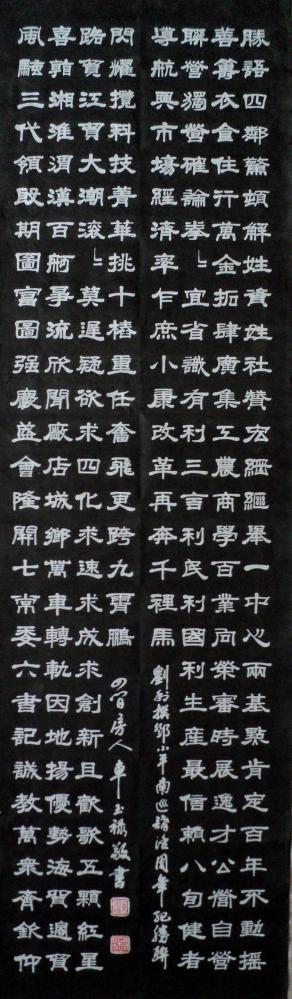 勝語四鄰驚頓解姓資姓社贊宏綱繼舉一中心兩基點肯定百年不動搖
善籌衣食住行萬金拓肆廣集工農商學百業向榮審時展逸才公營自營
聯營獨營確論拳〻宜省識有利三言利民利國利生產最信賴八旬健者
導航興市場經濟率乍庶小康改革再奔千裡馬
撰鄧小平南巡講話周年紀勝聯
風騷三代領敢期圖富圖强慶益會隆開七常委六書記誠教萬衆齊欽仰
喜贛湘淮渭漢百舸爭流欣聞廠店城鄉萬車轉軌因地揚優勢海貿邊貿
路貿江貿大潮滾〻莫遲疑欲求四化求速求成求創新且歡歌五顆紅星
閃耀攬科技菁華挑十樁重任奮飛更跨九霄鵬
房人車玉祿敬書